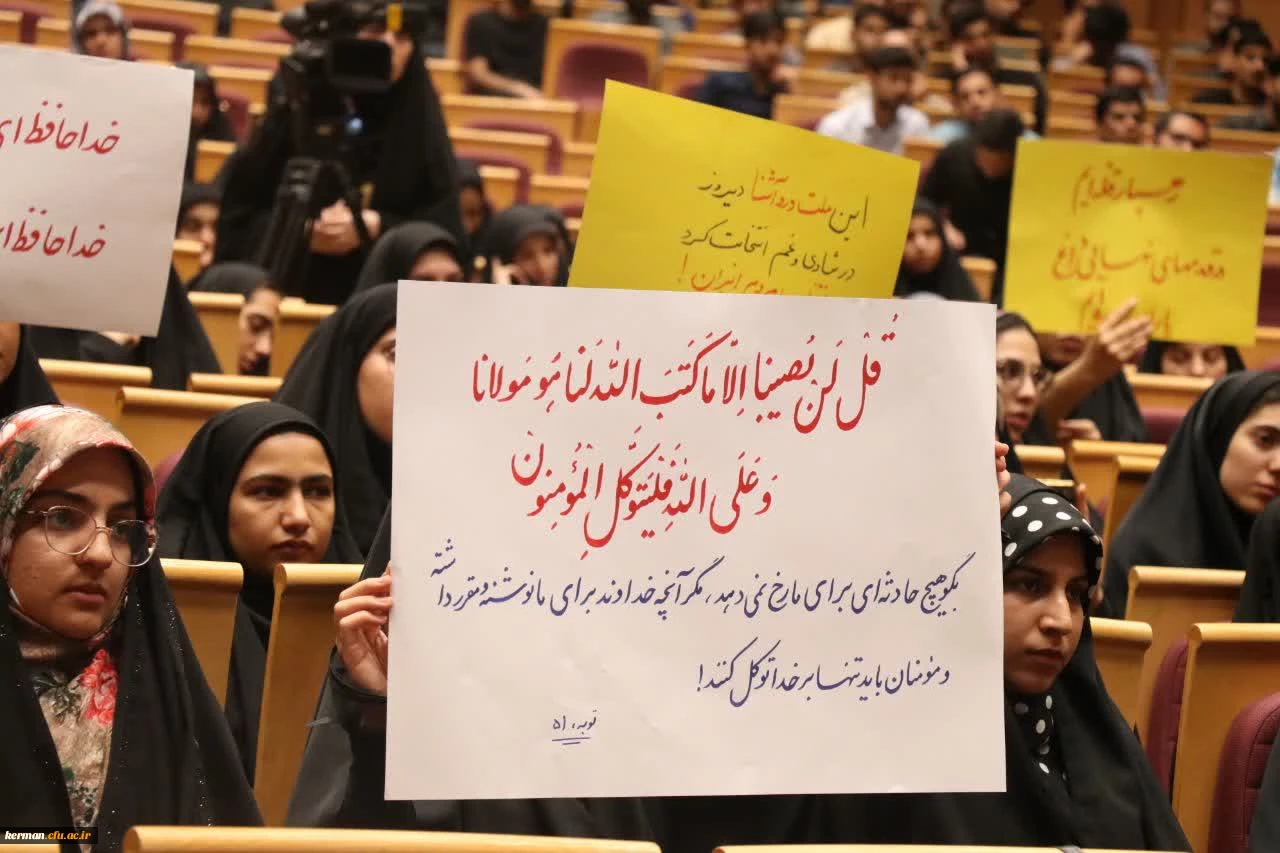 خداحافظ ای
خداحافظ ا
این ملت درد آشنا دیروز
در شادی و غم انتخابت کرد
ایران!
قُلْ لَنْ يُصيبَنا اِلّا مَا كَتَبَ اللهُ لَنا هُوَ مَولانا
وَ عَلَى اللهِ فَلْيَتَوَكَّلِ الْمُؤْمِنُونَ
بگو هیچ حادثه‌ای برای ما رخ نمی‌دهد، مگر آنچه خداوند برای ما نوشته و مقرر داشته
و مؤمنان باید تنها بر خدا توکل کنند!
توبه، ۵۱
kerman.cfu.ac.ir